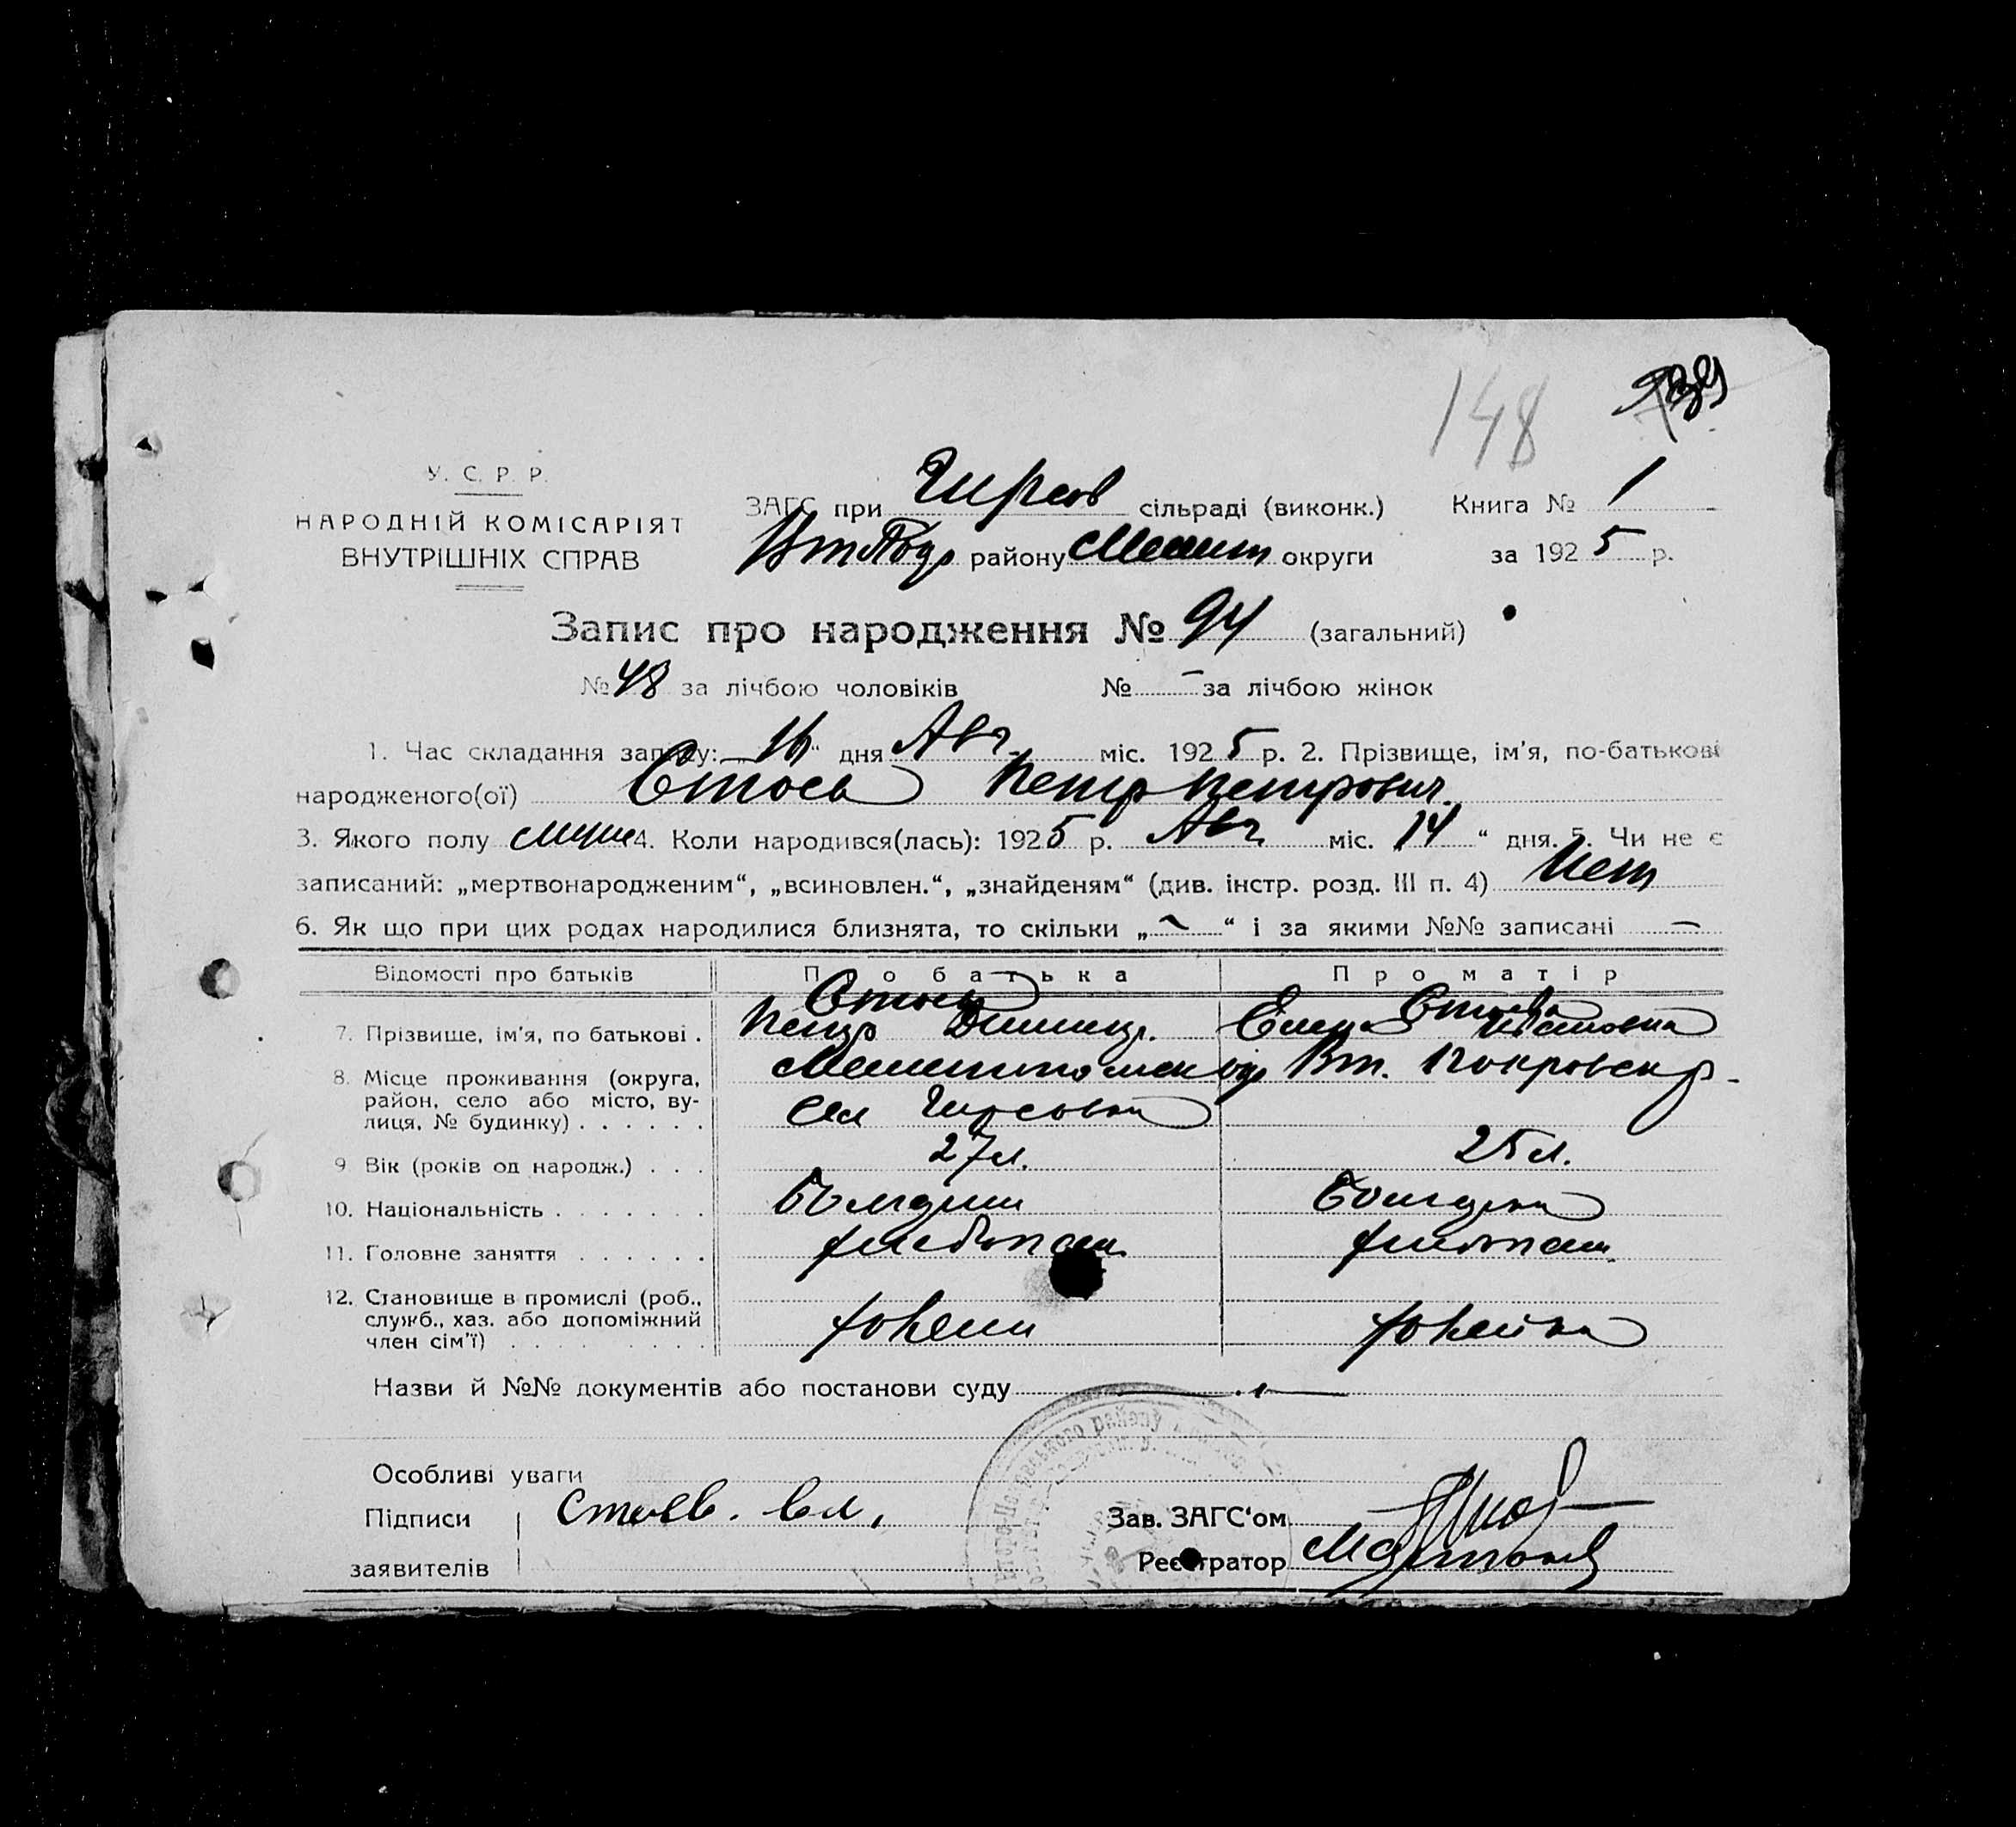 148
У. С. Р. Р.
НАРОДНІЙ КОМІСАРІЯТ
ВНУТРІШНІХ СПРАВ
ЗАГС при Гирсов сільраді (виконк.) Книга № 1
району Мелит округи за 1925 р.
Запис про народження № 94 (загальний)
№ 48 за лічбою чоловіків № — за лічбою жінок
1. Час складання запису: 16 " дня Авг. міс. 1925 р. 2. Прізвище, ім'я, по-батькові
народженого(ої) Стоев Петр Петрович.
3. Якого полу муж 4. Коли народився(лась): 1925 р. Авг міс. „14“ дня. 5. Чи не є
записаний: „мертвонародженим“, „всиновлен.“, „знайденям“ (див. інстр. розд. III п. 4) Нет
6. Як що при цих родах народилися близнята, то скільки „ — “ і за якими №№ записані —
Відомості про батьків Про батька Про матір
Стоев Стоева
7. Прізвище, ім'я, по батькові . Петр Димитр. Елена Ивановна
8. Місце проживання (округа, Мелитопольск окр Вт. Покровск р-
район, село або місто, ву- сел Гирсовка
лиця, № будинку) . . . . . .
9 Вік (років од народж.) . . . 27 л. 25 л.
10. Національність . . . . . . . Болгарин Болгарка
11. Головне заняття . . . . . . хлебопаш. хлебопаш.
12. Становище в промислі (роб.,
служб., хаз. або допоміжний хозяин хозяйка
член сім'ї) . . . . . . . . .
Назви й №№ документів або постанови суду —
Особливі уваги
Підписи Стоев. Зав. ЗАГС'ом
заявителів Реєстратор